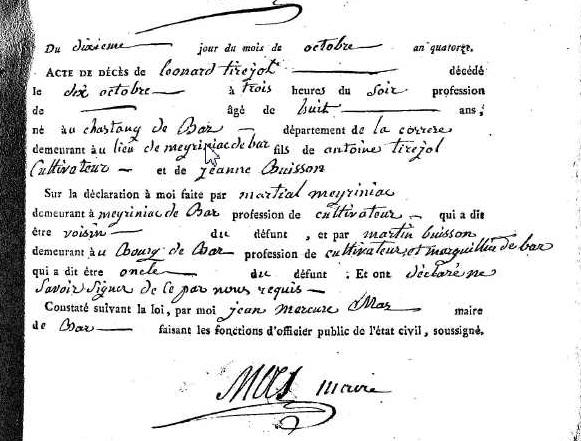 Du dixieme jour du mois de octobre an quatorze.
ACTE DE DÉCÈS de leonard tirejol décédé
le dix octobre à trois heures du soir profession
de âgé de huit ans,
né au chastang de Bar département de la correze
demeurant au lieu de meyriniac de bar fils de antoine tirejol
Cultivateur et de jeanne Buisson
Sur la déclaration à moi faite par martial meyriniac
demeurant à meyriniac de Bar profession de cultivateur qui a dit
être voisin du défunt, et par martin buisson
demeurant au Bourg de Bar profession de cultivateur et marguillier de bar
qui a dit être oncle du défunt ; Et ont déclaré ne
Savoir Signer de ce par nous requis
Constaté suivant la loi, par moi jean mercure Mas maire
de Bar faisant les fonctions d'officier public de l'état civil, soussigné.
Mas maire